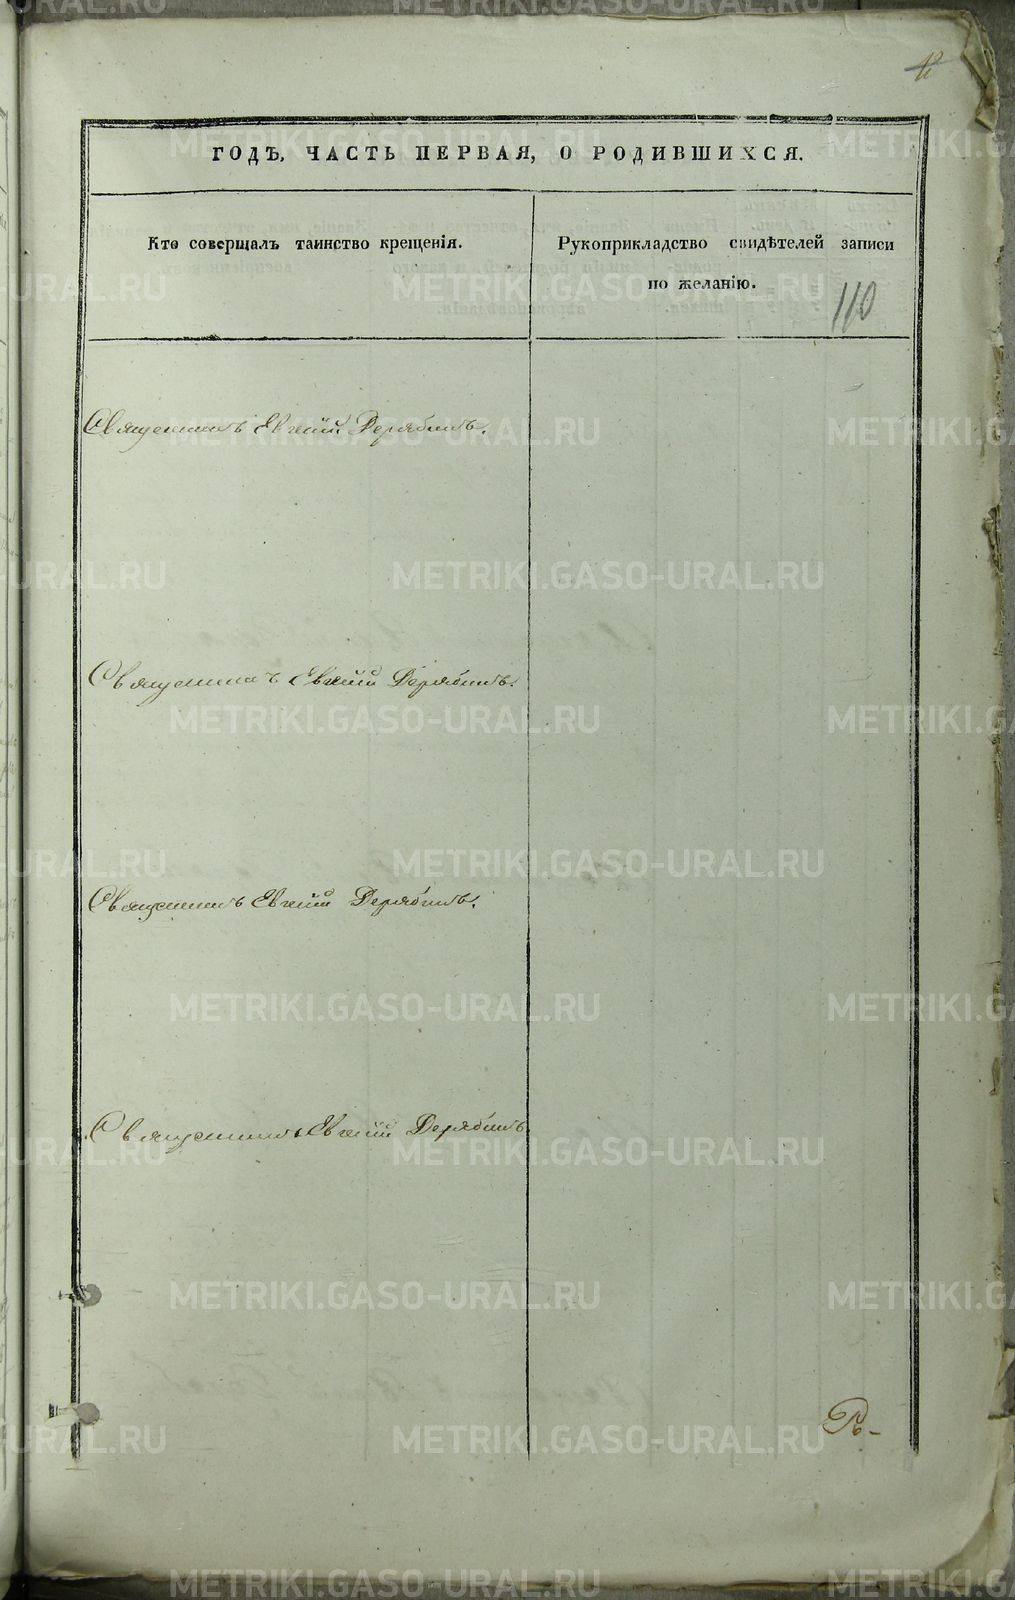 ГОДЪ, ЧАСТЬ ПЕРВАЯ, О РОДИВШИХСЯ.
Кто совершалъ таинство крещенія.
Рукоприкладство свидѣтелей записи
по желанію.
110
Священникъ Евгеній Дерябинъ.
Священникъ Евгеній Дерябинъ.
Священникъ Евгеній Дерябинъ.
Священникъ Евгеній Дерябинъ
METRIKI.GASO-URAL.RU